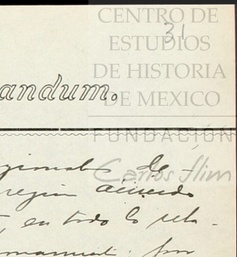 CENTRO DE
31
ESTUDIOS
DE HISTORIA
andum.
DE MEXICO
FUNDACIÓN
de
Carlos Slim
acuerdo
, en todo lo rela-
por